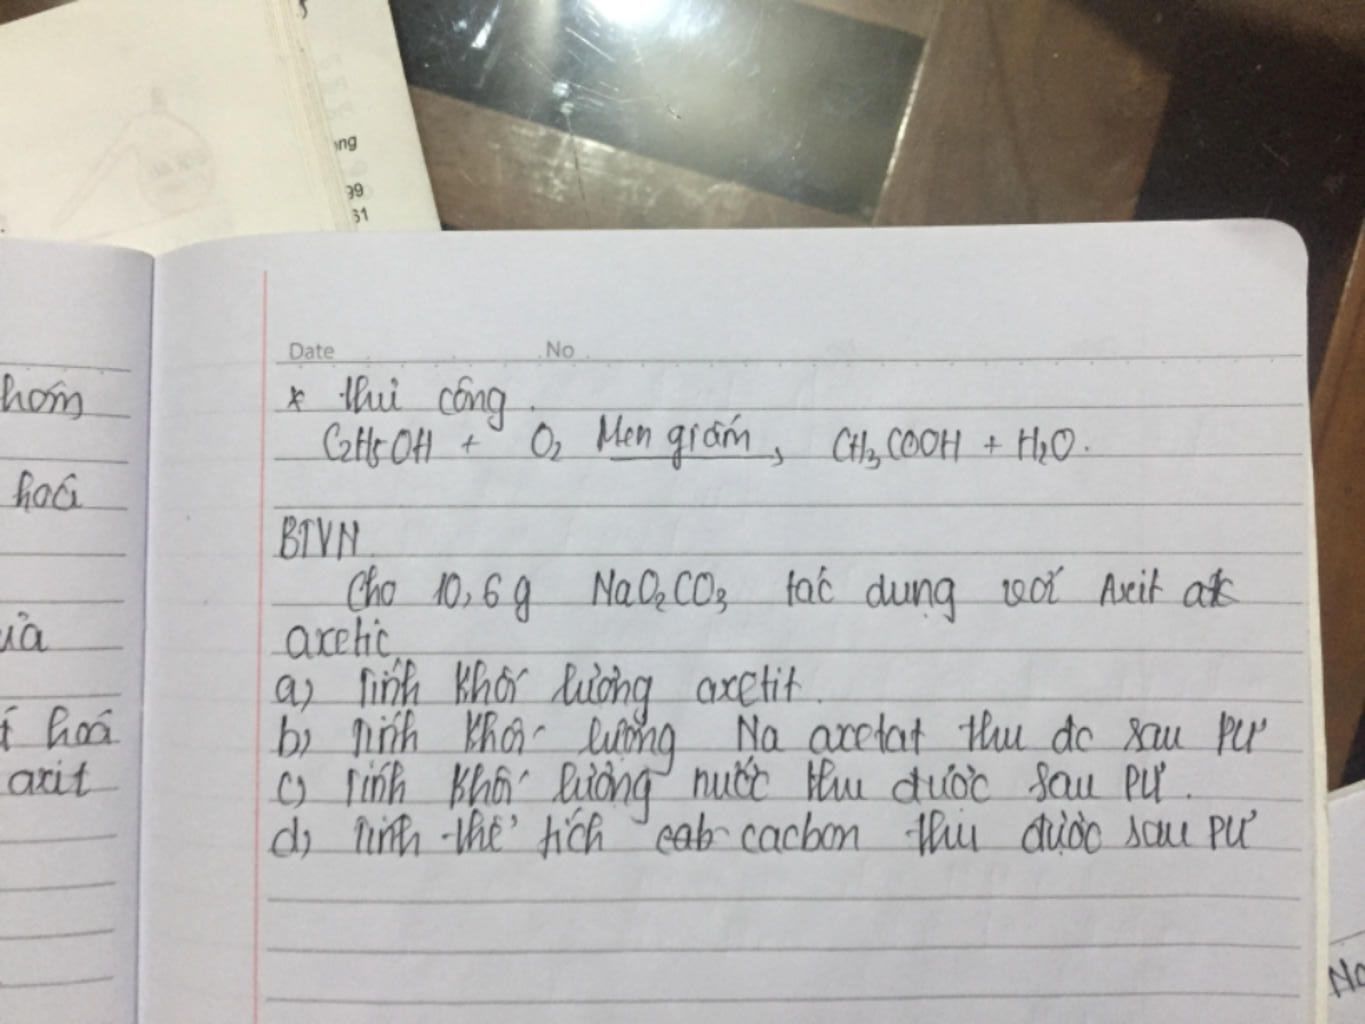 ng
99
31
hóm
hoá
ủa
hoá
axit
Date No
* thủ công.
C2H5OH + O2 Men giấm, CH3COOH + H2O.
BTVN
Cho 10,6g NaO2CO3 tác dụng với Axit
axetic
a) Tính khối lượng axetit.
b) Tính khối lượng Na axetat thu đc sau PƯ
c) Tính khối lượng nước thu được sau PƯ.
d) Tính thể tích cab cacbon thu được sau PƯ
No